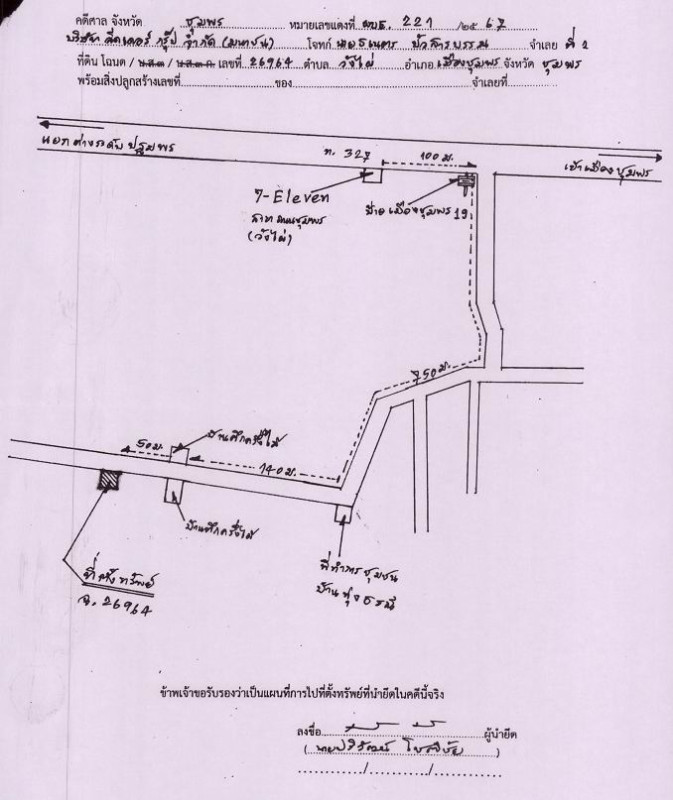 คดีศาล จังหวัด ชุมพร หมายเลขแดงที่ ผบE. 221 /๒๕ 67
บริษัท ลีดเดอร์ กรุ๊ป จำกัด (มหาชน) โจทก์ บัวสารบรรณ จำเลย ที่ 2
ที่ดิน โฉนด / น.ส.๓ / น.ส.๓ ก. เลขที่ 26964 ตำบล วังไผ่ อำเภอ เมืองชุมพร จังหวัด ชุมพร
พร้อมสิ่งปลูกสร้างเลขที่ ของ จำเลยที่
แยกต่างระดับ ปฐมพร
ท. 327
100 ม.
เข้าเมือง ชุมพร
7-Eleven
สาขา ถนนชุมพร
(วังไผ่)
ป้าย เมืองชุมพร 19
750 ม.
50 ม.
บ้านตึกครึ่งไม้
140 ม.
บ้านตึกครึ่งไม้
ที่ทำการ ชุมชน
บ้าน ทุ่ง
ที่ตั้ง ทรัพย์
ฉ. 26964
ข้าพเจ้าขอรับรองว่าเป็นแผนที่การไปที่ตั้งทรัพย์ที่นำยึดในคดีนี้จริง
ลงชื่อ ผู้นำยึด